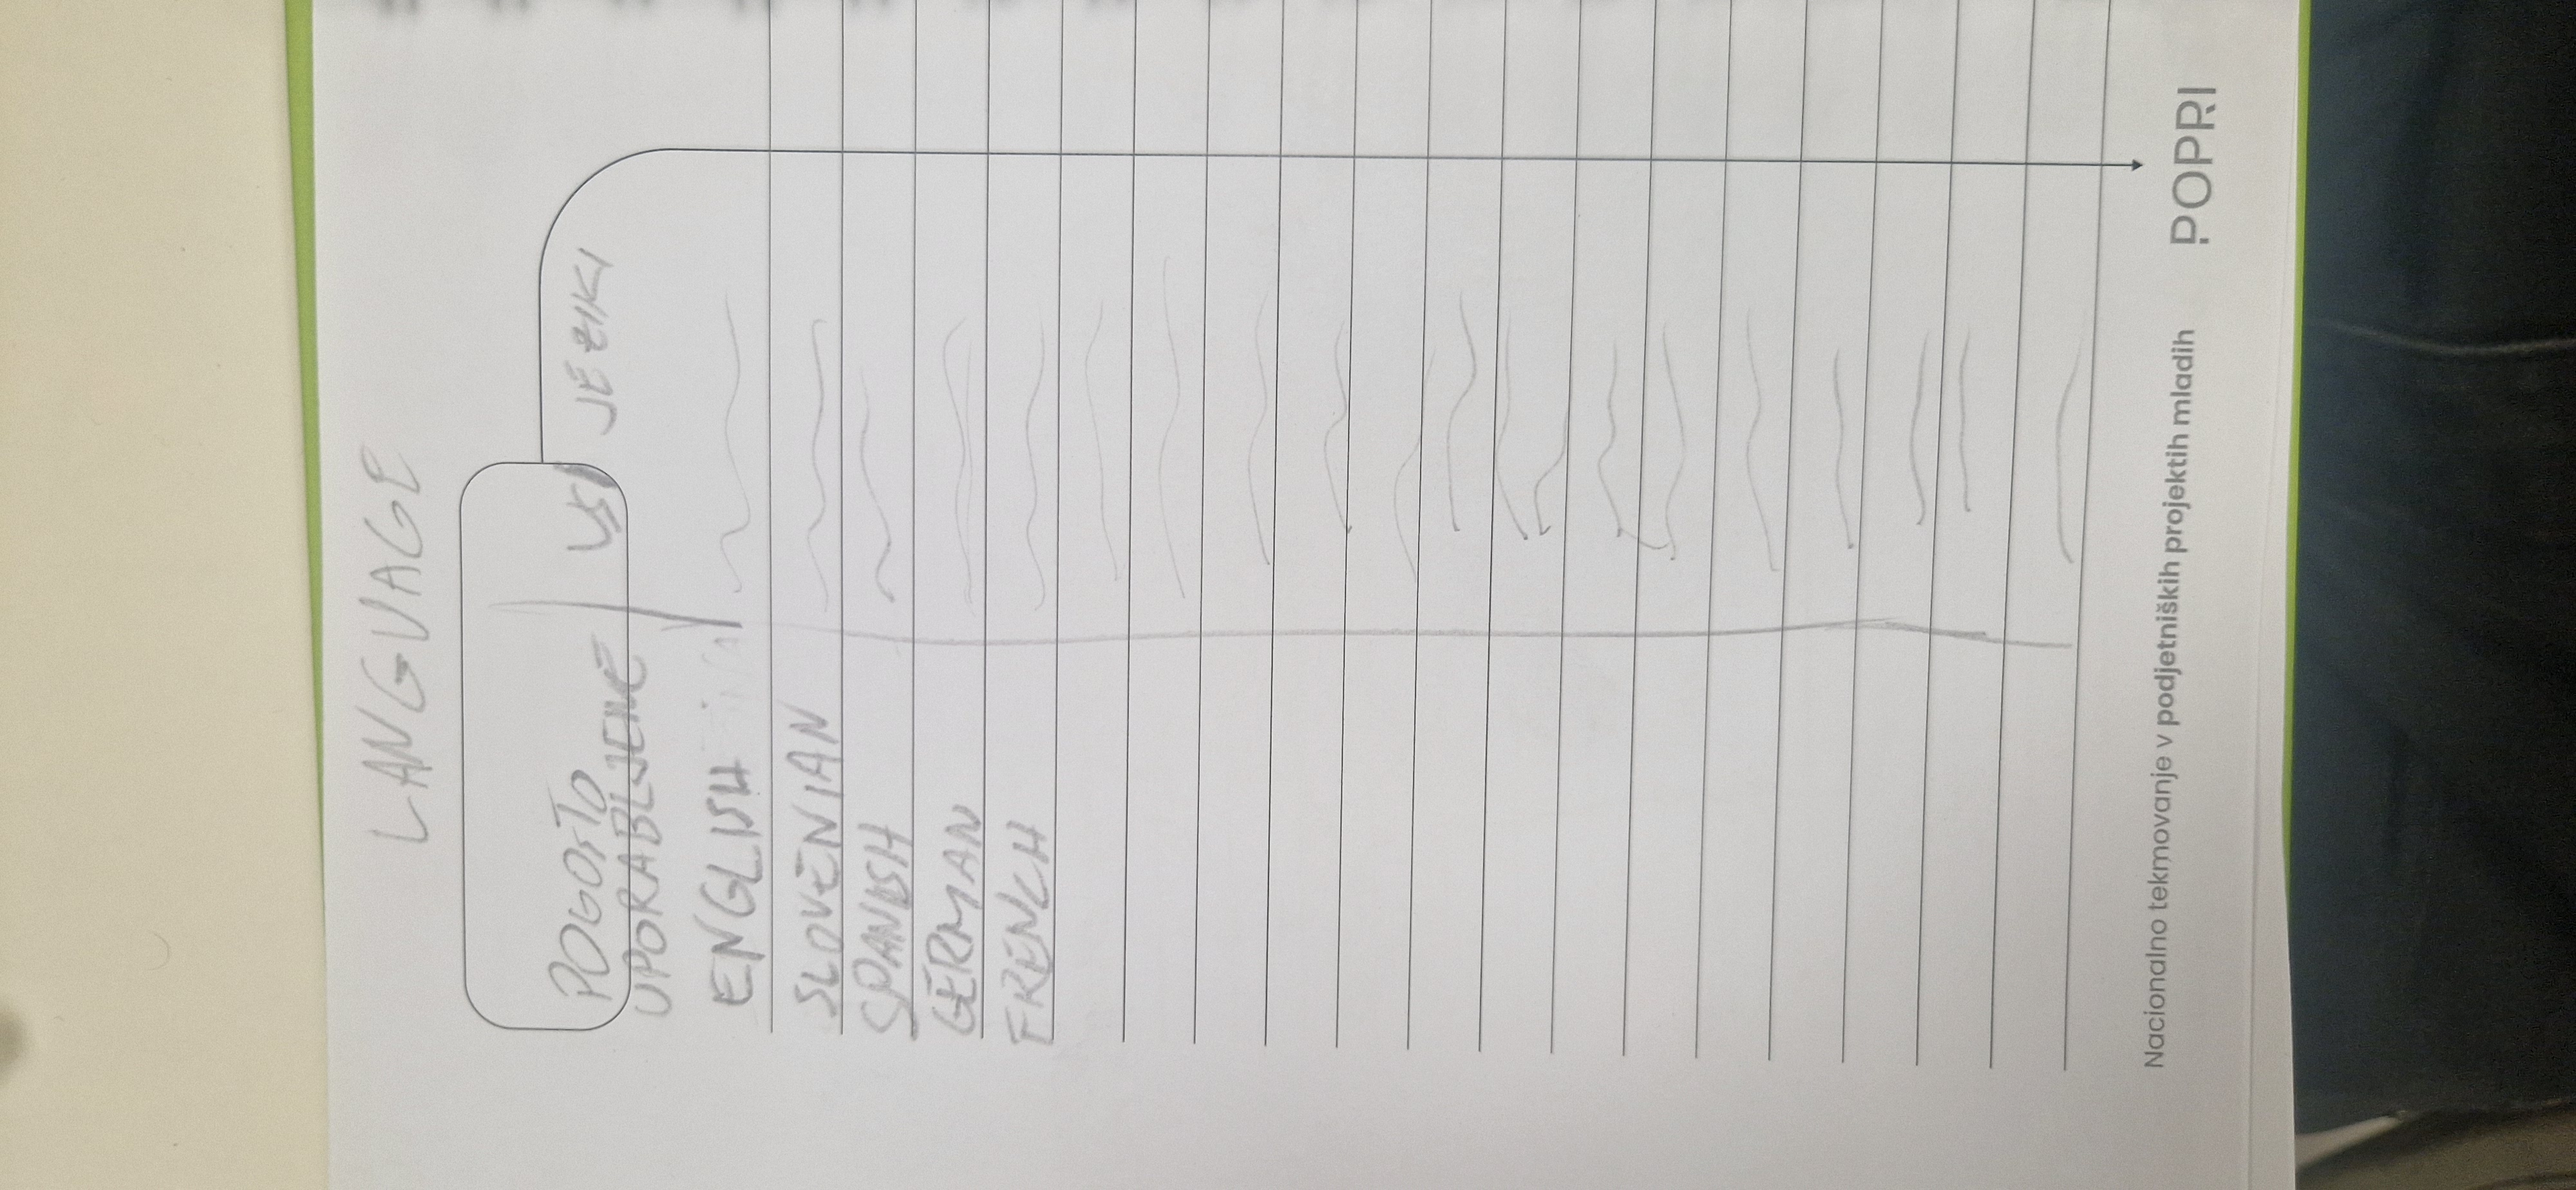 LANGUAGE
POGOSTO
UPORABLJENE
VSI JEZIKI
ENGLISH
SLOVENIAN
SPANISH
GERMAN
FRENCH
Nacionalno tekmovanje v podjetniških projektih mladih
POPRI